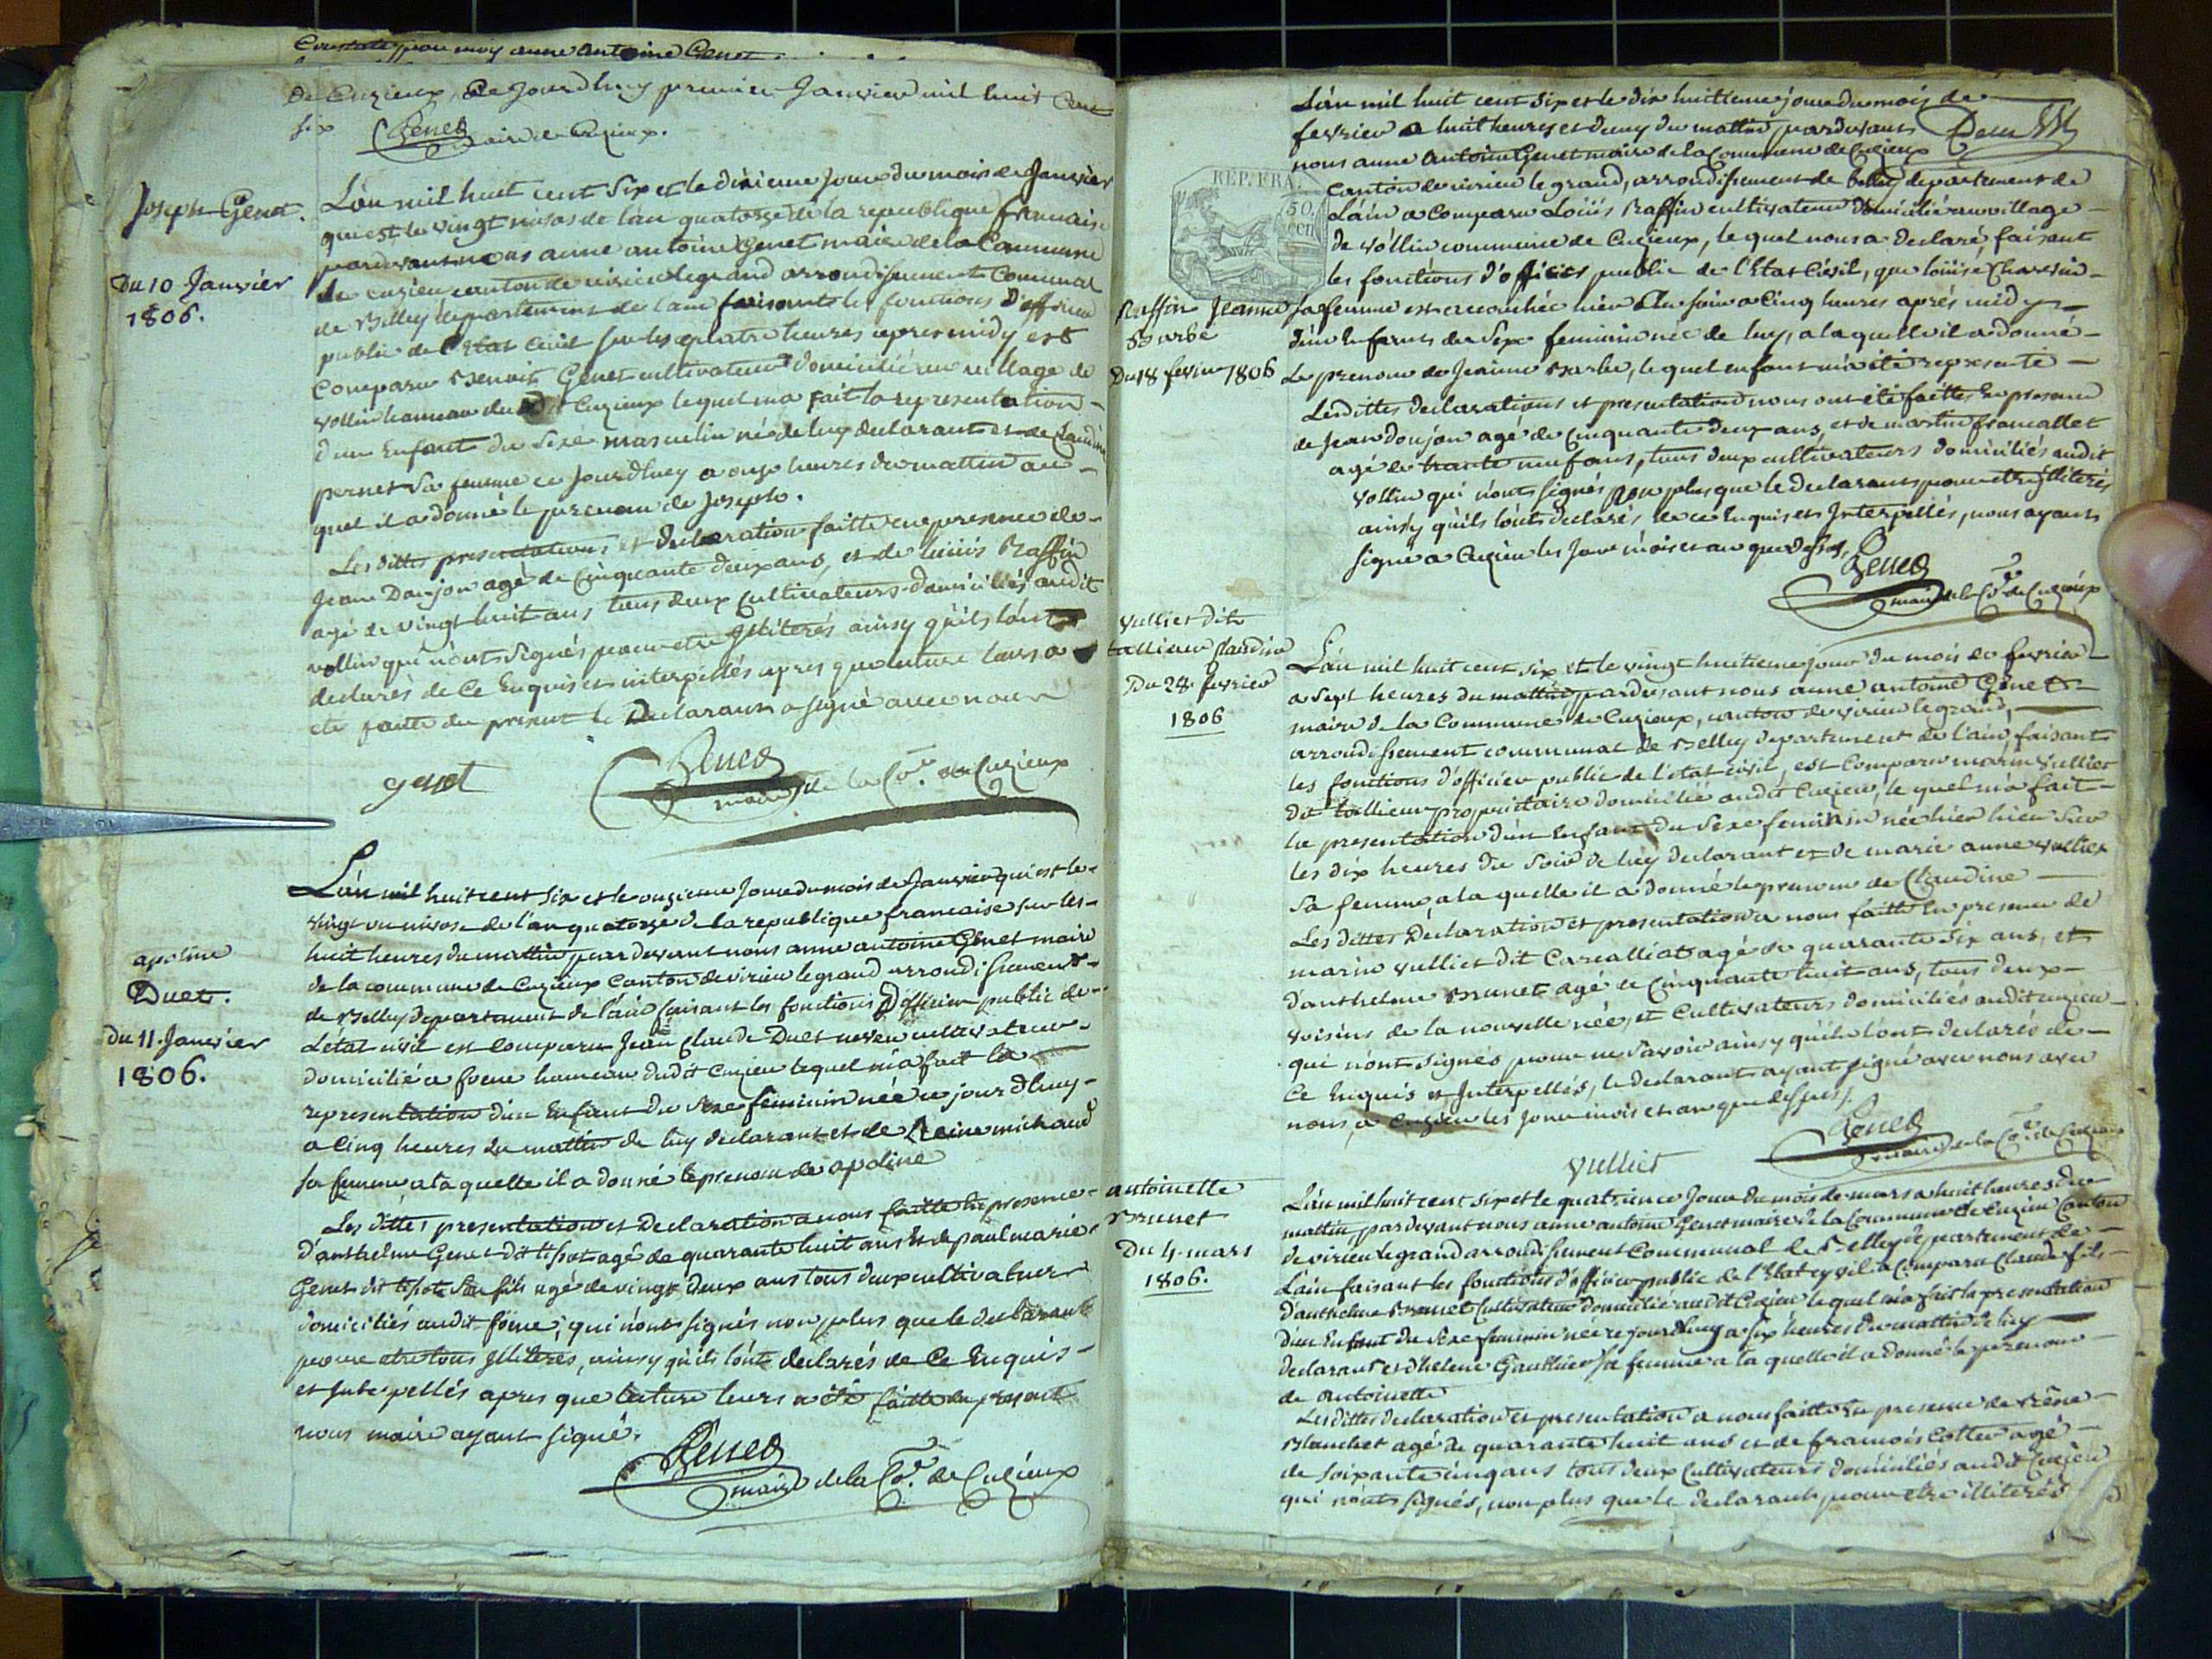 Constaté par moy anne antoine Genet
de Cuzieux, Ce Jourdhuy premier Janvier mil huit Cent
six Genet maire de Cuzieux.
Joseph Genet.
Du 10 Janvier
1806.
L'an mil huit cent Six et le dixieme Jour du mois de Janvier
qui est le vingt nivos de l'an quatorze de la republique francaise
pardevant nous anne antoine Genet maire de la Commune
de cuzieu canton de virieu legrand arrondissement Communal
de Belley departement de l'ain faisants les fonctions D'officier
public de l'Etat Civil sur les quatre heures apres midy est
Comparu Benoit Genet cultivateur domicilié au village de
vollin hameau du dit Cuzieux lequel m'a fait la representation
d'un Enfant du Sexe masculin né de luy declarant et de Claudine
pernet Sa femme ce Jourdhuy a onze heures du mattin au
quel il a donné le prenom de Joseph.
Les dittes presentations et declaration faitte en presence de
Jean Donjon agé de Cinquante deux ans, et de Loüis Raffin
agé de vingt huit ans tous deux Cultivateurs domiciliés audit
vollin qui n'onts Signés pour etre Illiterés ainsy qu'ils l'ont
declarés de Ce Enquis et interpellés apres que lecture leurs a
eté faitte du present le Declarant a signé avec nous
genet
Genet
maire de la Cne. de Cuzieux
apoline
Duet.
Du 11 Janvier
1806.
L'an mil huit cent Six et le onzieme Jour du mois de Janvier qui est le
vingt un nivose de l'an quatorze de la republique francaise sur les
huit heures du mattin par devant nous anne antoine Genet maire
de la commune de Cuzieux Canton de virieu le grand arrondissement
de Belley departement de l'ain faisant les fonctions D'officier public de
L'etat civil est comparu Jean Claude Duet neveu cultivateur
domicilié a foene hameau dudit Cuzieu lequel m'a fait la
representation d'un Enfant du Sexe feminin née ce jour d'huy
a Cinq heures du mattin de luy declarant et de Reine michaud
sa femme a la quelle il a donné le prenom de apoline
Les dittes presentation et Declaration a nous faitte En presence
d'anthelme Genet dit tipot agé de quarante huit ans Et de paul marie
Genet dit tipot Son fils agé de vingt deux ans tous deux cultivateurs
domiciliés audit foene, qui n'ont signés non plus que le declarant
pour etre tous Illiterés, ainsy qu'ils l'ont declarés de Ce Enquis
et Interpellés apres que lecture leurs a été faitte du present
nous maire ayant signé.
Genet
maire de la Cne. de Cuzieux
L'an mil huit cent Six et le dix huitieme jour du mois de
fevrier a huit heures et demy du mattin pardevant
nous anne antoine Genet maire de la Commune de Cuzieux
REP. FRA.
50.
cen
canton de virieu le grand, arrondissement de belley departement de
L'ain a Comparu Loüis Raffin cultivateur domicilié au village
de vollin commune de Cuzieux, le quel nous a declaré, faisant
les fonctions d'officier public de l'Etat Civil, que loüise Charvin
Raffin Jeanne
Barbe
Du 18 fevrier 1806
sa femme est accouchée hier Sur Soir a Cinq heures aprés midy
d'un Enfant du Sexe feminin née de luy, a la quelle il a donné
Le prenom de Jeanne Barbe, le quel enfant m'a été representé
Lesdittes declarations et presentation nous ont été faittes En presence
de Jean donjon agé de Cinquante deux ans, et de martin francallet
agé de trante neuf ans, tous deux cultivateurs domiciliés audit
vollin qui n'onts signés non plus que le declarant pour etre Illiterés
ainsy qu'ils l'ont declarés de ce Enquis et Interpellés, nous ayants
signé a Cuzieu les Jour mois et an que dessus.
Genet
maire de la Cne. de Cuzieux
Vulliet dit
tallieur Claudine
Du 28 fevrier
1806
L'an mil huit cent six et le vingt huitieme jour du mois de fevrier
a sept heures du mattin pardevant nous anne antoine Genet
maire de la Commune de Cuzieux, canton de virieu le grand,
arrondissement communal de Belley departement de l'ain, faisant
les fonctions d'officier public de l'etat civil, est Comparu marin Vulliet
dit tallieur proprietaire domicilié audit Cuzieu, le quel m'a fait
la presentation d'un Enfant du Sexe feminin née hier hier Sur
les dix heures du Soir de luy declarant et de marie anne Vulliet
Sa femme, a la quelle il a donné le prenom de Claudine
Les dittes Declaration et presentation a nous faitte En presence de
marin Vulliet dit Carcalliat agé de quarante six ans, et
d'anthelme Brunet agé de Cinquante huit ans, tous deux
voisins de la nouvelle née, et Cultivateurs domiciliés audit cuzieu
qui n'ont signés pour ne Savoir ainsy qu'ils l'ont declarés de
Ce Enquis et Interpellés, le declarant ayant signé avec nous avec
nous, a Cuzieu les Jour mois et an que dessus.
Vulliet
Genet
maire de la Cne. de Cuzieux
antoinette
Brunet
Du 4 mars
1806.
L'an mil huit cent six et le quatrieme Jour du mois de mars a huit heures du
mattin, par devant nous anne antoine Genet maire de la Commune de Cuzieu Canton
de virieu le grand arrondissement Communal de Belley departement de
L'ain faisant les fonctions d'officier public de l'Etat Cyvil a Comparu Claude fils
d'anthelme Brunet Cultivateur domicilié audit Cuzieu le quel m'a fait la presentation
d'un Enfant du Sexe feminin née ce jourdhuy a Six heures du mattin de luy
Declarant et d'helene Gauthier Sa femme a la quelle il a donné le prenom
de antoinette
Les dittes declaration et presentation a nous faitte En presence de Réné
Blanchet agé de quarante huit ans et de francois Cottin agé
de soixante cinq ans tous deux Cultivateurs domiciliés audit Cuzieu
qui n'onts signés, non plus que le declarant pour etre illiterés